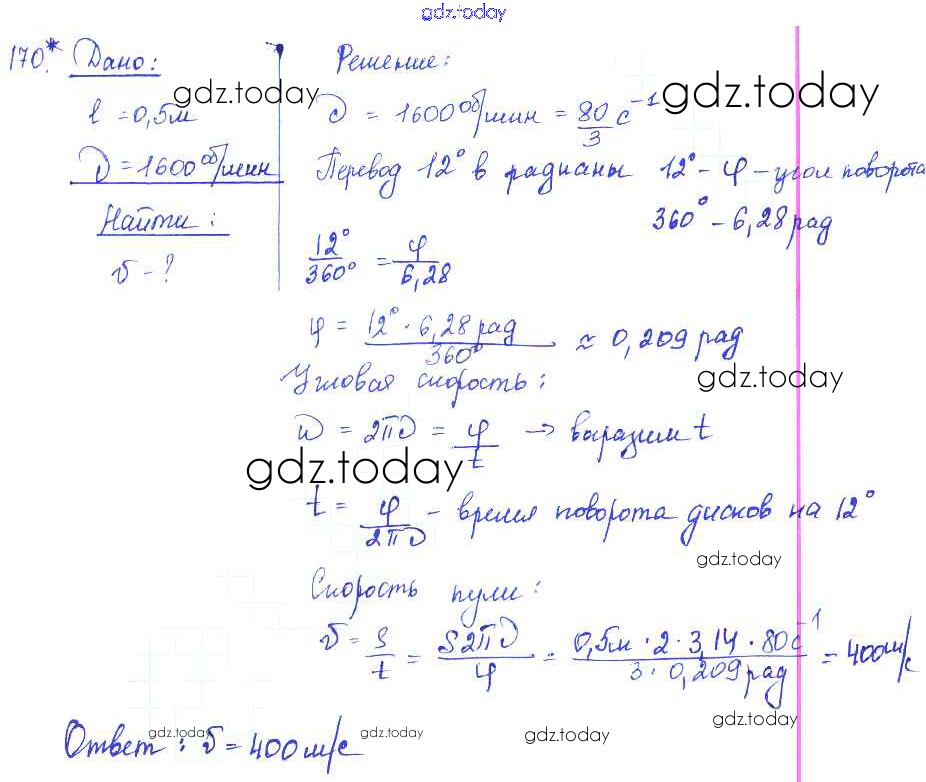 gdz.today
170.* Дано: Решение:
gdz.today gdz.today
l = 0,5м
ν = 1600 об/мин = 80/3 с⁻¹
ν = 1600 об/мин
Перевод 12° в радианы 12° - φ - угол поворота
360° - 6,28 рад
Найти:
v - ?
12°/360° = φ/6,28
φ = 12° · 6,28 рад/360° ≈ 0,209 рад
gdz.today
Угловая скорость:
ω = 2πν = φ/t → выразим t
gdz.today
t = φ/2πν - время поворота дисков на 12°
gdz.today
Скорость пули:
v = S/t = S2πν/φ = 0,5м · 2 · 3,14 · 80с⁻¹/3 · 0,209 рад = 400м/с
gdz.today
Ответ: v = 400 м/с
gdz.today gdz.today gdz.today